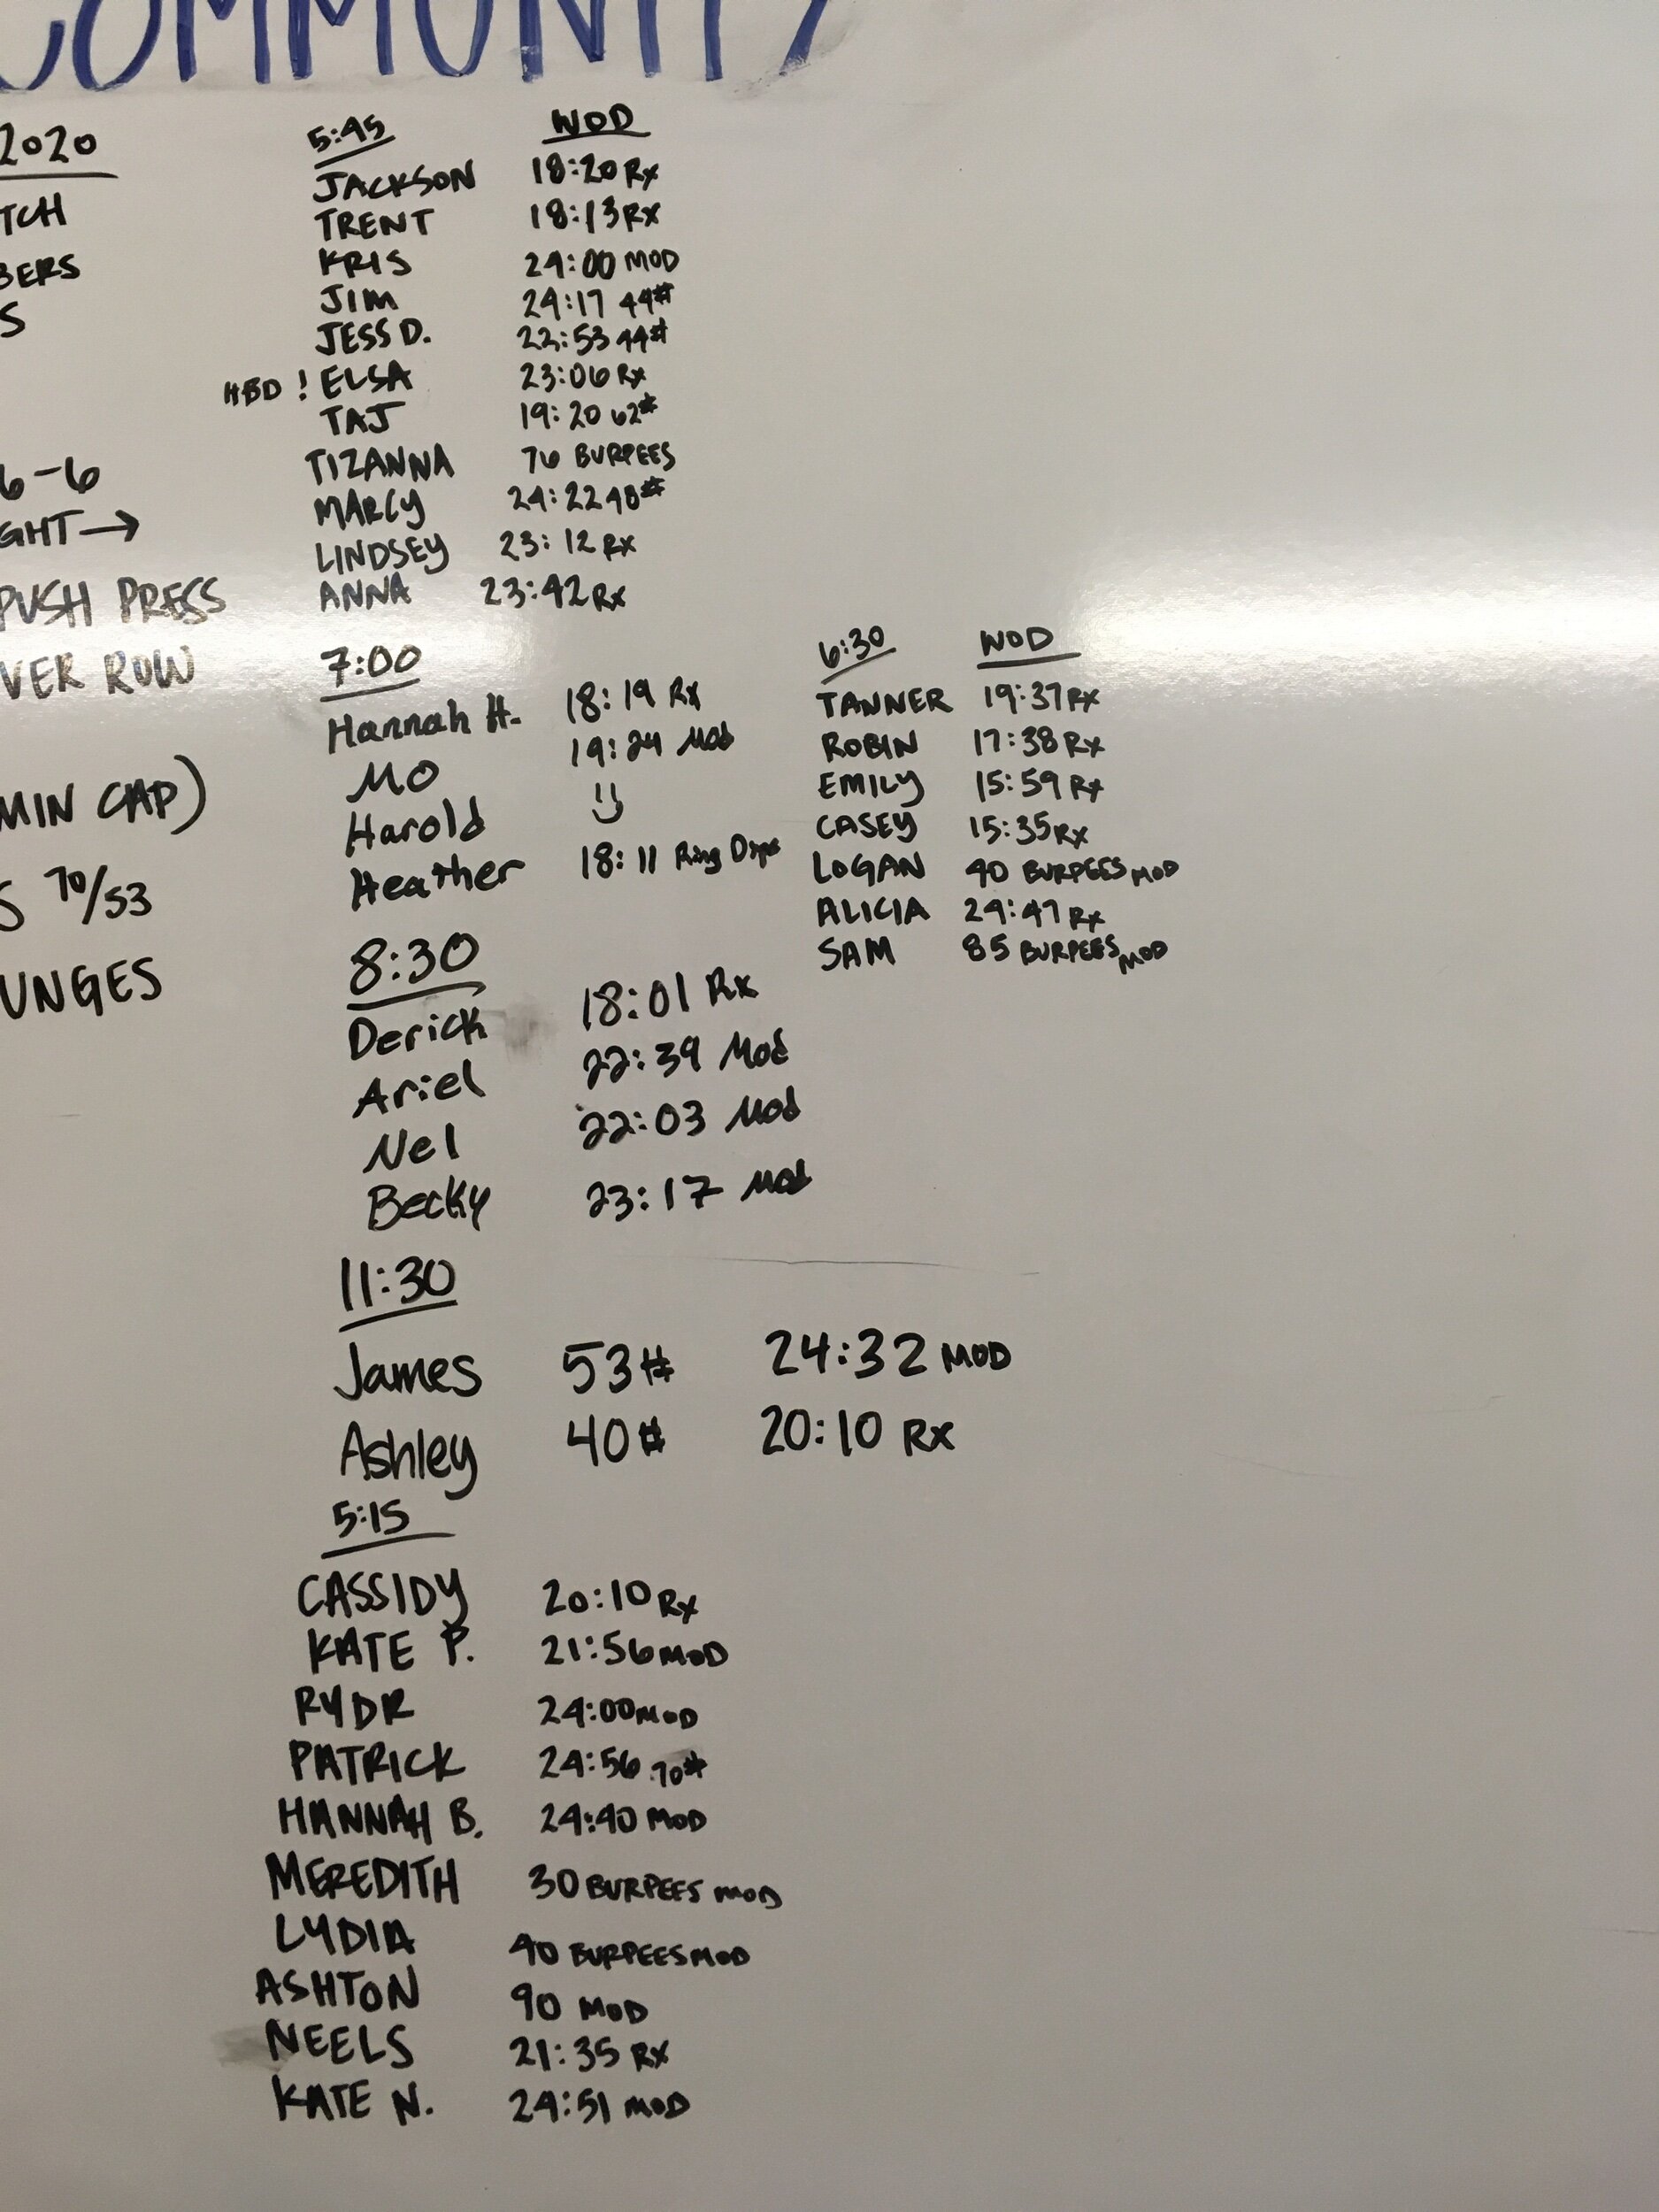 COMMUNITY
2020
TCH
BERS
S
6-6
GHT →
PUSH PRESS
VER ROW
MIN CAP)
S 70/53
UNGES
5:45 WOD
JACKSON 18:20 Rx
TRENT 18:13 RX
KRIS 24:00 MOD
JIM 24:17 44#
JESS D. 22:53 44#
HBD ! ELSA 23:06 Rx
TAJ 19:20 62#
TIZANNA 76 BURPEES
MARCY 24:22 48#
LINDSEY 23:12 RX
ANNA 23:42 Rx
7:00
Hannah H. 18:19 Rx
Mo 19:24 Mod
Harold
Heather 18:11 Ring Dips
8:30
Derick 18:01 Rx
Ariel 22:39 Mod
Nel 22:03 Mod
Becky 23:17 Mod
11:30
James 53# 24:32 MOD
Ashley 40# 20:10 Rx
5:15
CASSIDY 20:10 Rx
KATE P. 21:56 MOD
RYDR 24:00 MOD
PATRICK 24:56 70#
HANNAH B. 24:40 MOD
MEREDITH 30 BURPEES MOD
LYDIA 40 BURPEES MOD
ASHTON 90 MOD
NEELS 21:35 RX
KATE N. 24:51 MOD
6:30 WOD
TANNER 19:37 RX
ROBIN 17:38 Rx
EMILY 15:59 Rx
CASEY 15:35 Rx
LOGAN 40 BURPEES MOD
ALICIA 24:47 Rx
SAM 85 BURPEES MOD